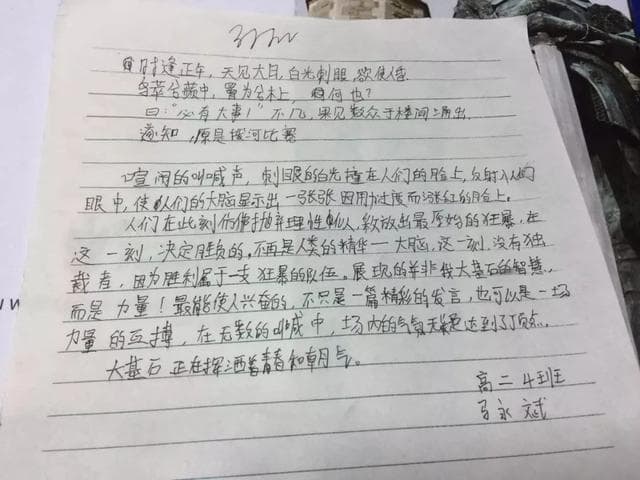 时逢正午，天见大日，白光刺眼，欲使人昏
曰："必有大事！"不几，果见数众于楼间涌出
遂知，原是拔河比赛
喧闹的叫喊声，刺眼的白光撞在人们的脸上，反射入人的
眼中，使人们的大脑显示出一张张因用力过度而涨红的脸上。
人们在此刻仿佛抛弃理性，释放出最原始的狂暴，在
这一刻，决定胜负的，不再是人类的精华一大脑，这一刻，没有独
裁者，因为胜利属于一支狂暴的队伍。展现的并非我大基石的智慧，
而是力量！最能使人兴奋的，不只是一篇精彩的发言，也可以是一场
力量的互搏，在无数的叫喊中，场内的气氛达到了顶点。
大基石正在挥洒着青春和朝气。
高二4班
马永斌